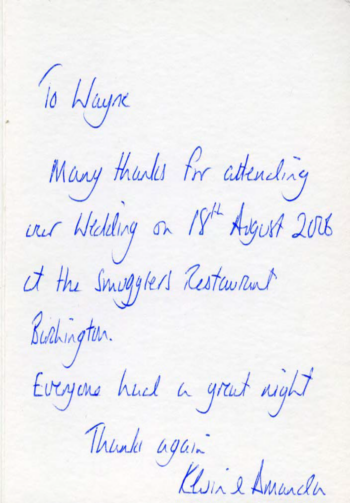 To Wayne
Many thanks for attending
our Wedding on 18th August 2006
at the Smugglers Restaurant
Birchington.
Everyone had a great night
Thanks again
Kevin & Amanda